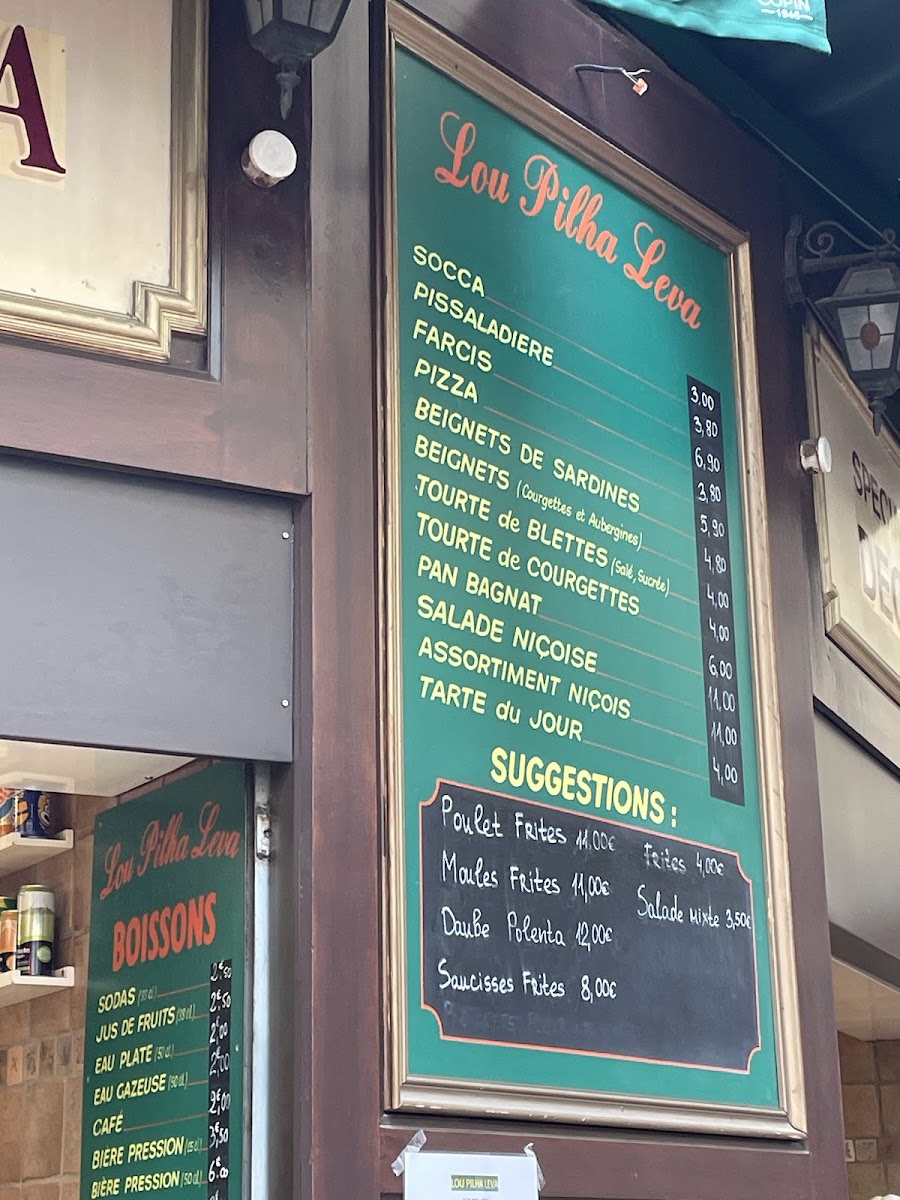 A
Lou Pilha Leva
SOCCA 3,00
PISSALADIERE 3,80
FARCIS 6,90
PIZZA 3,80
BEIGNETS DE SARDINES 5,90
BEIGNETS (Courgettes et Aubergines) 4,80
TOURTE de BLETTES (Salé, Sucrée) 4,00
TOURTE de COURGETTES 4,00
PAN BAGNAT 6,00
SALADE NIÇOISE 11,00
ASSORTIMENT NIÇOIS 11,00
TARTE du JOUR 4,00
SUGGESTIONS :
Poulet Frites 11,00€
Moules Frites 11,00€
Daube Polenta 12,00€
Saucisses Frites 8,00€
Frites 4,00€
Salade mixte 3,50€
Lou Pilha Leva
BOISSONS
SODAS (33 cl) 2€50
JUS DE FRUITS 2€50
EAU PLATE (50 cl) 2€00
EAU GAZEUSE (50 cl) 2€00
CAFÉ 2€00
BIÈRE PRESSION (25 cl) 3€50
BIÈRE PRESSION (50 cl) 6€00
LOU PILHA LEVA